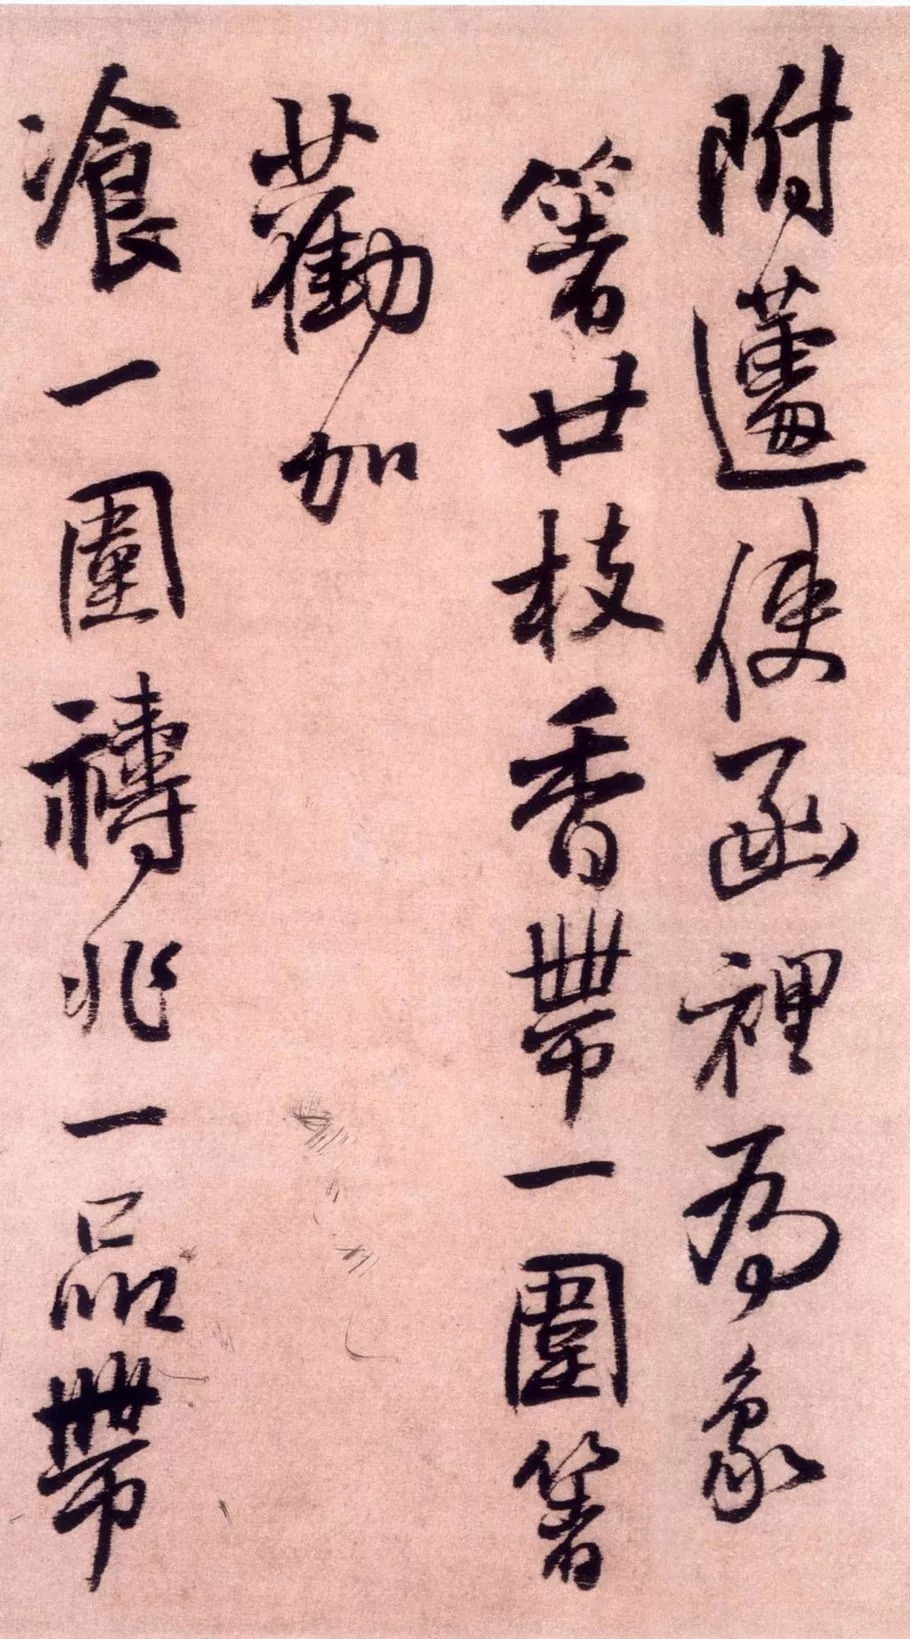 附蘧使函裡為象
箸廿枝香帶一圍箸
勸加
飡一圍禱兆一品帶